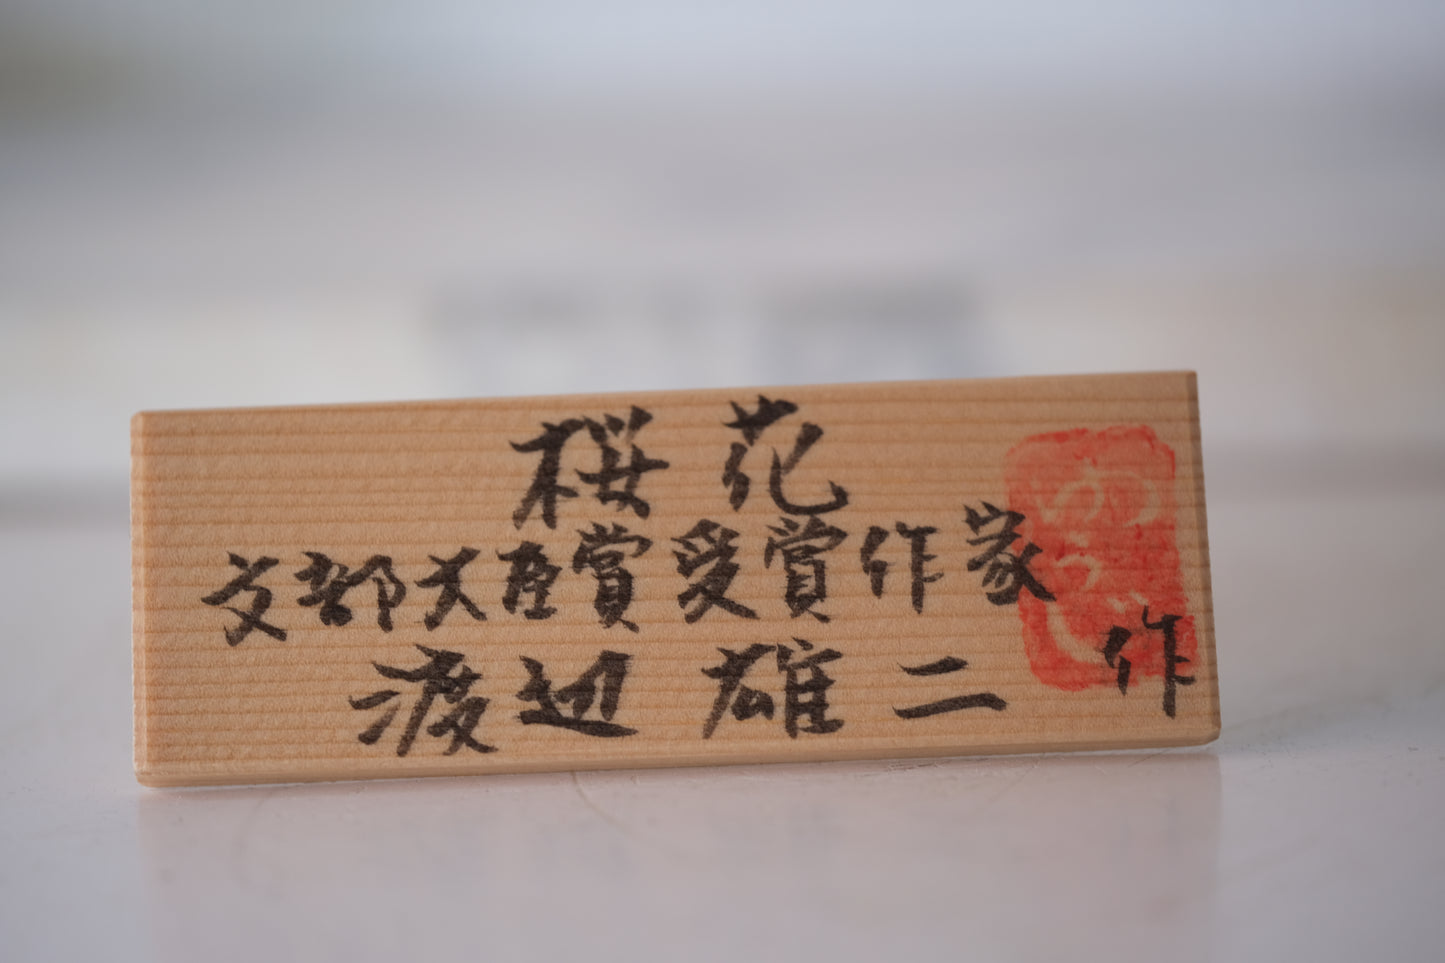 桜花
文部大臣賞受賞作家
渡辺雄二 作
ゆうじ